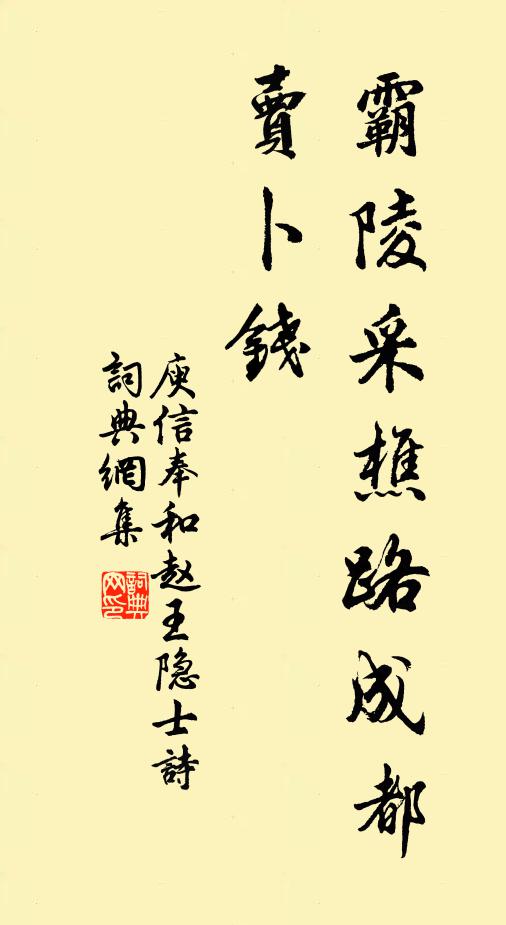 霸陵采樵路成都
賣卜錢
庾信奉和赵王隐士詩
詞典網集
詞典网印